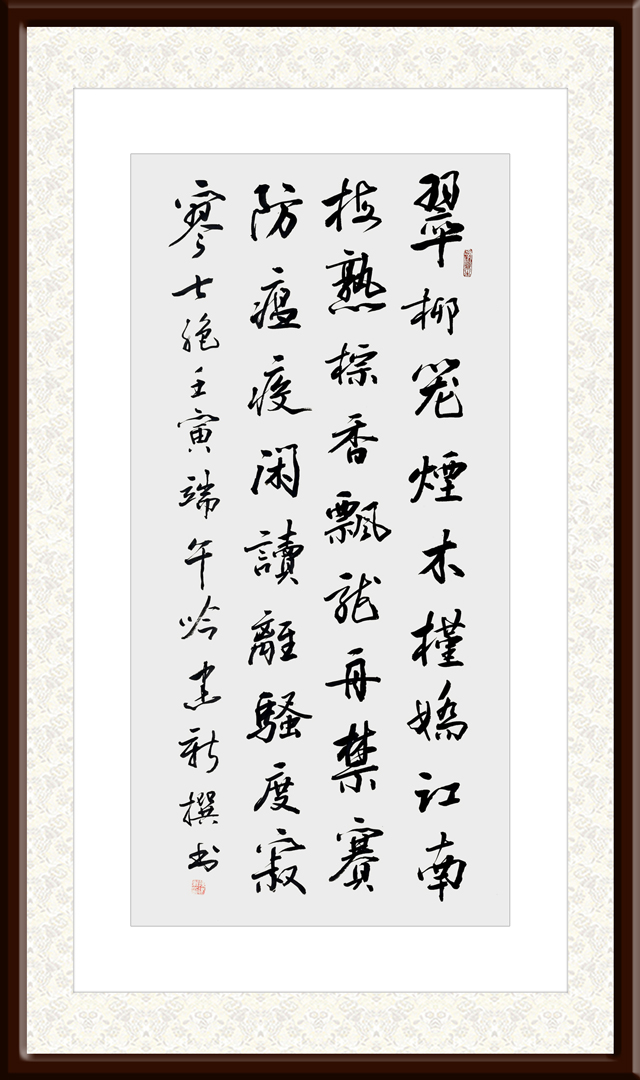 翠柳笼煙木槿嬌江南
梅熟棕香飄龙舟禁賽
防瘟疫闲讀離騷度寂
寥七绝壬寅端午吟建新撰书